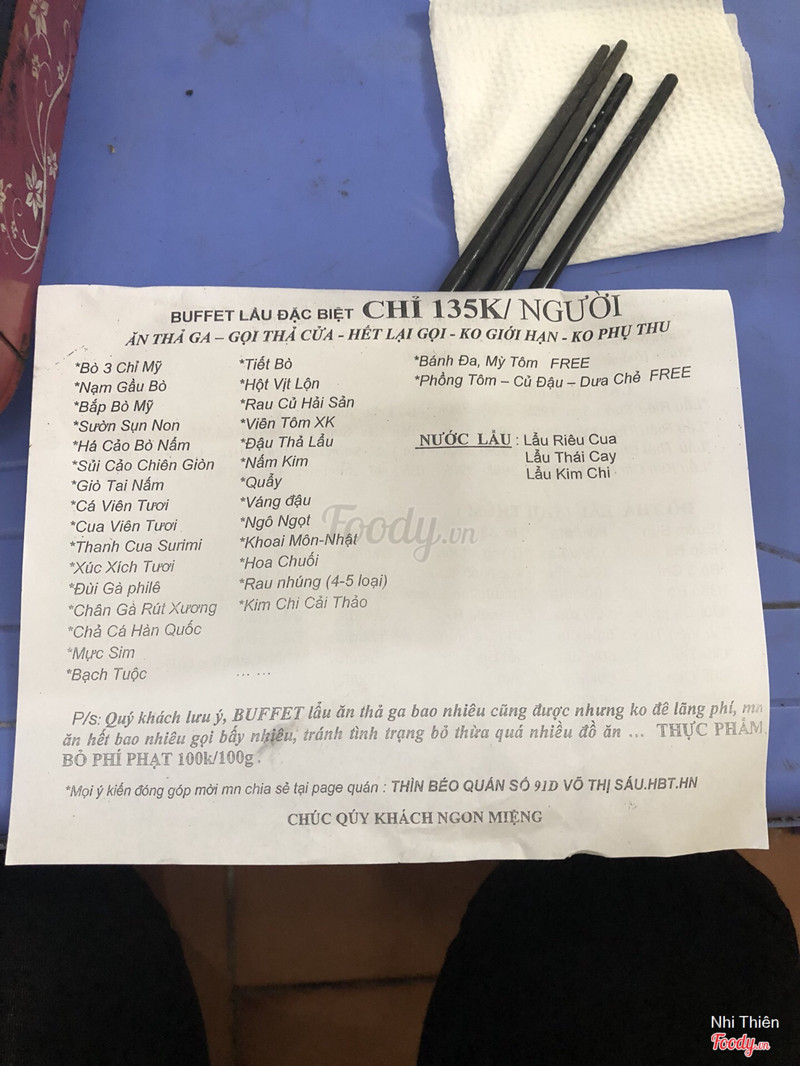 BUFFET LẨU ĐẶC BIỆT CHỈ 135K/ NGƯỜI
ĂN THẢ GA – GỌI THẢ CỬA - HẾT LẠI GỌI - KO GIỚI HẠN - KO PHỤ THU
*Bò 3 Chỉ Mỹ
*Nạm Gầu Bò
*Bắp Bò Mỹ
*Sườn Sụn Non
*Há Cảo Bò Nấm
*Sủi Cảo Chiên Giòn
*Giò Tai Nấm
*Cá Viên Tươi
*Cua Viên Tươi
*Thanh Cua Surimi
*Xúc Xích Tươi
*Đùi Gà philê
*Chân Gà Rút Xương
*Chả Cá Hàn Quốc
*Mực Sim
*Bạch Tuộc
*Tiết Bò
*Hột Vịt Lộn
*Rau Củ Hải Sản
*Viên Tôm XK
*Đậu Thả Lẩu
*Nấm Kim
*Quẩy
*Váng đậu
*Ngô Ngọt
*Khoai Môn-Nhật
*Hoa Chuối
*Rau nhúng (4-5 loại)
*Kim Chi Cải Thảo
... ...
*Bánh Đa, Mỳ Tôm FREE
*Phồng Tôm – Củ Đậu – Dưa Chẻ FREE
NƯỚC LẨU : Lẩu Riêu Cua
Lẩu Thái Cay
Lẩu Kim Chi
P/s: Quý khách lưu ý, BUFFET lẩu ăn thả ga bao nhiêu cũng được nhưng ko đê lãng phí, mn
ăn hết bao nhiêu gọi bấy nhiêu, tránh tình trạng bỏ thừa quá nhiều đồ ăn ... THỰC PHẨM
BỎ PHÍ PHẠT 100k/100g .
*Mọi ý kiến đóng góp mời mn chia sẻ tại page quán : THÌN BÉO QUÁN SỐ 91D VÕ THỊ SÁU.HBT.HN
CHÚC QÚY KHÁCH NGON MIỆNG
Foody.vn
Nhi Thiên
Foody.vn